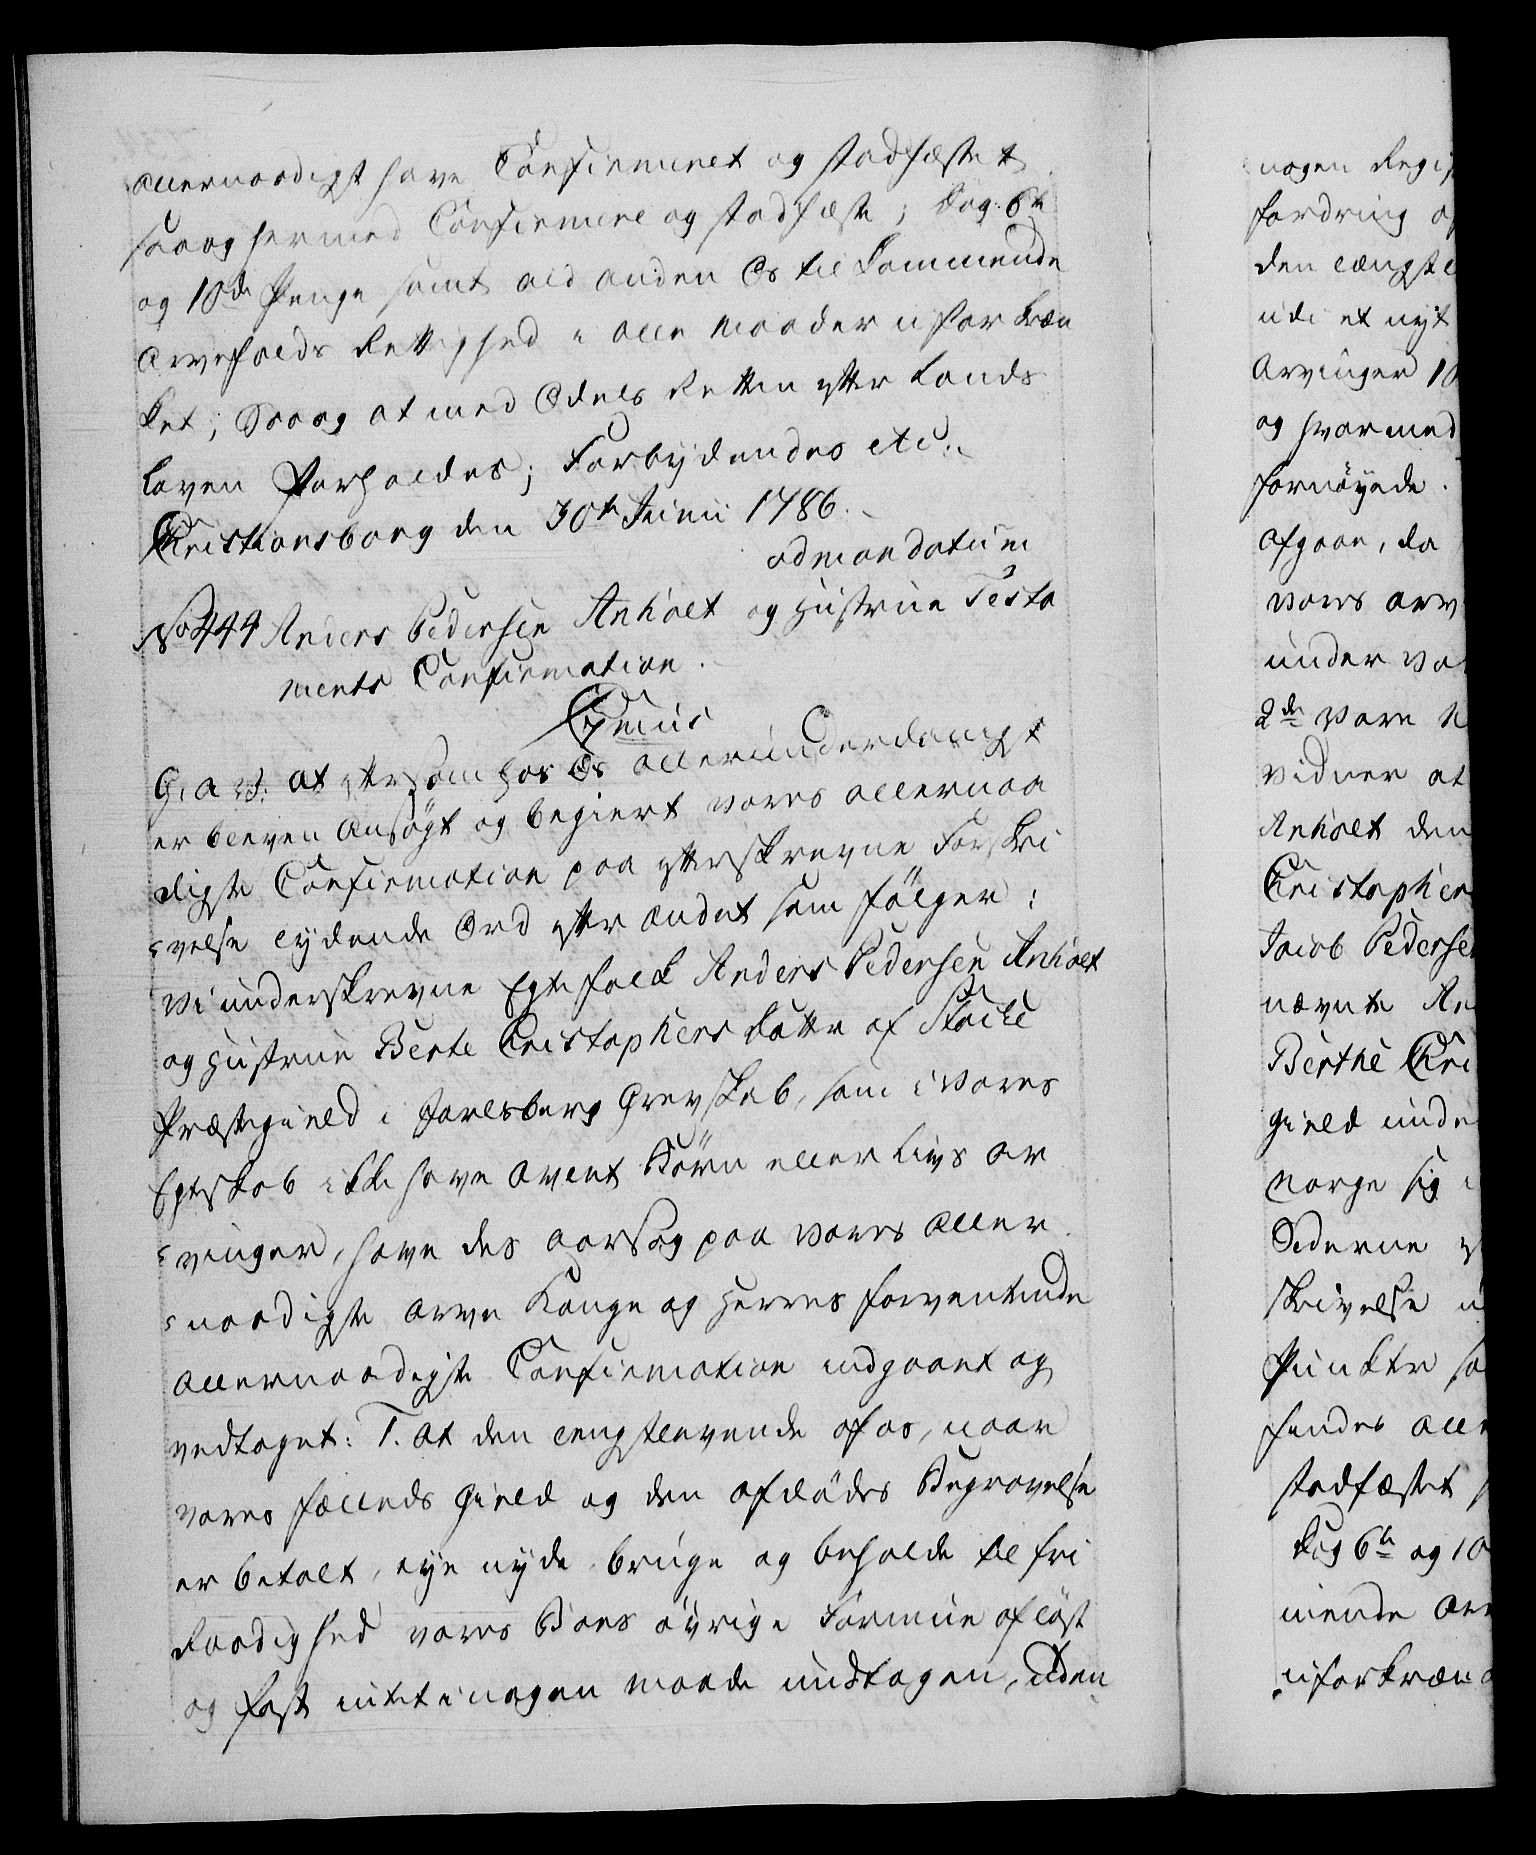 allernaadigst have Confirmeret og stadfæstet
saa og hermed Confirmere og stadfæste; dog 6te
og 10de Penge samt ald anden Os tilkommende
Arvefalds Rettighed i alle Maader uforkræn
ket; Saa og at med Odels Retten efter Lands
Loven forholdes; Forbydendes etc:
Christiansborg den 30te Junii 1786.
ad mandatum
No 444 Anders Pedersen Anholt og Hustrue Testa
ments Confirmation.
C 7mus
G. A. V. at eftersom hos Os allerunderdanigst
er bleven Ansøgt og begiert vores allernaa
digste Confirmation paa efterskrevne Forskri
velse lydende Ord efter andet som følger:
Vi underskrevne Egtefolk Anders Pedersen Anholt
og Hustrue Berte Cristophers datter af Stocke
Præstegield i Jarlsberg Grevskab, som i vores
Egteskab ikke have avlet Børn eller Livs Ar
vinger, have des aarsag paa vores Aller
naadigste Arve Konge og Herres forventende
allernaadigste Confirmation indgaaet og
vedtaget: 1. At den lengstlevende af os, naar
vores fælleds Gield og den afdødes Begravelse
er betalt, eye nyde bruge og beholde til fri
Raadighed vores Boes øvrige Formue af løst
og fast intet i nogen maade undtagen, uden
nogen Regi
fordring
den længstl
udi et nyt
Arvinger 10
og hvormed
fornøyede.
Afgaae, da
vores arv
under vo
2de vore
Vidner at
Anholt den
Cristopher
Jacob Pederse
nævnte An
Berthe Cri
Gield unde
Norge sig
Sederne
skrivelse
Punkter
findes alle
stadfæstet
dog 6te og 10
mende Arv
uforkræn